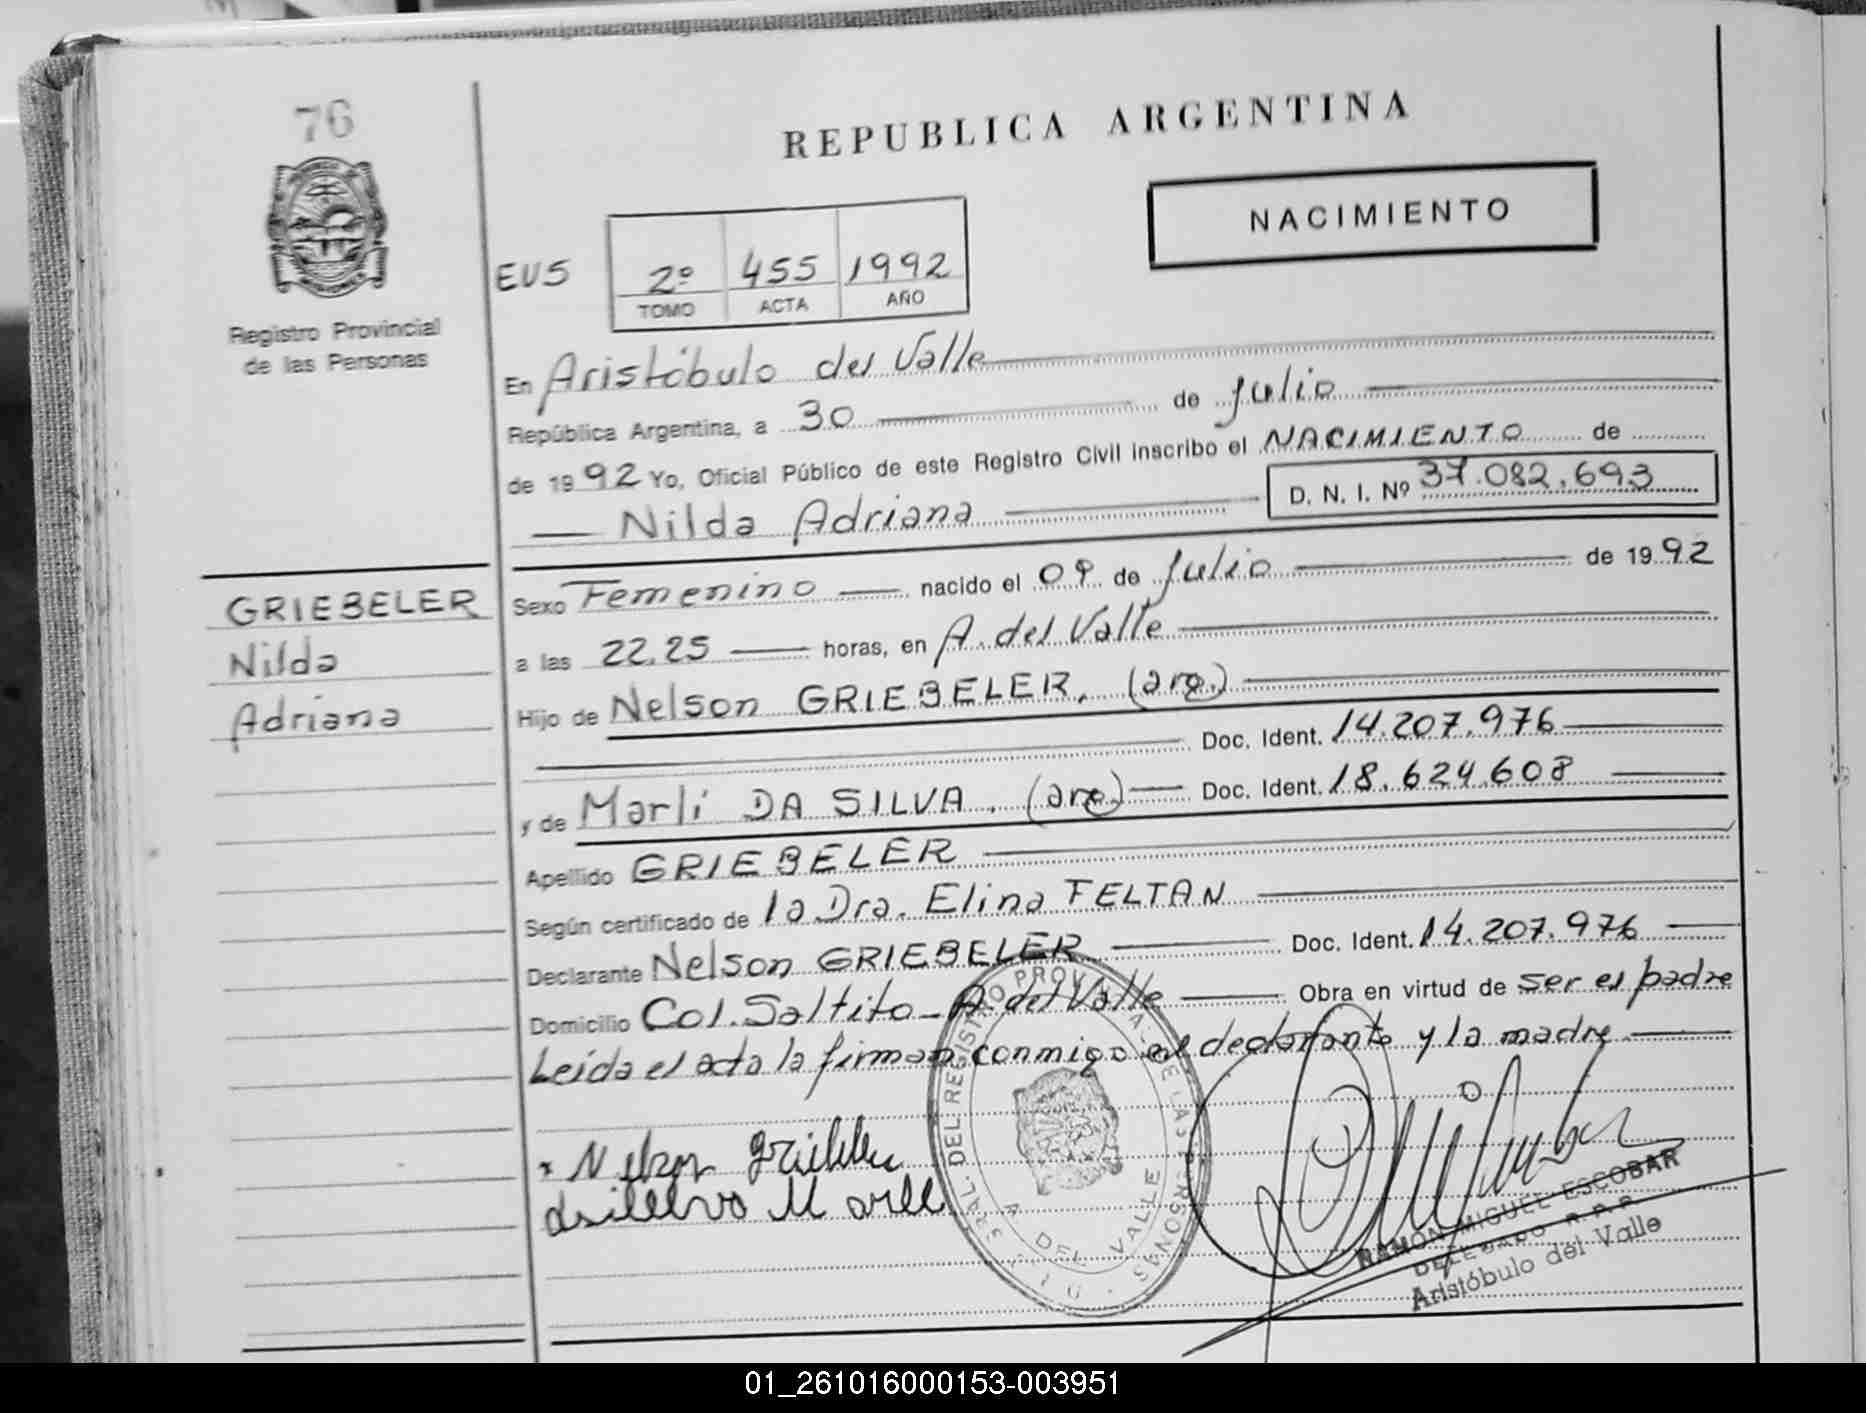 76
REPUBLICA ARGENTINA
NACIMIENTO
EUS 2º 455 1992
TOMO ACTA AÑO
Registro Provincial
de las Personas
En Aristóbulo del Valle
República Argentina, a 30 de Julio
de 1992 Yo, Oficial Público de este Registro Civil inscribo el NACIMIENTO de
Nilda Adriana D. N. I. Nº 37.082.693
GRIEBELER
Nilda
Adriana
Sexo Femenino nacido el 09 de Julio de 1992
a las 22.25 horas, en A. del Valle
Hijo de Nelson GRIEBELER. (arg.)
Doc. Ident. 14.207.976
y de Marli DA SILVA. (arg.) Doc. Ident. 18.624.608
Apellido GRIEBELER
Según certificado de la Dra. Elina FELTAN
Declarante Nelson GRIEBELER Doc. Ident. 14.207.976
Domicilio Col. Saltito - A. del Valle Obra en virtud de ser el padre
Leída el acta la firman conmigo el declarante y la madre
Nelson Griebeler
DEL REGISTRO PROVINCIAL DE LAS PERSONAS
A. DEL VALLE
RAMON MIGUEL ESCOBAR
DELEGADO R.P.P.
Aristóbulo del Valle
01_261016000153-003951